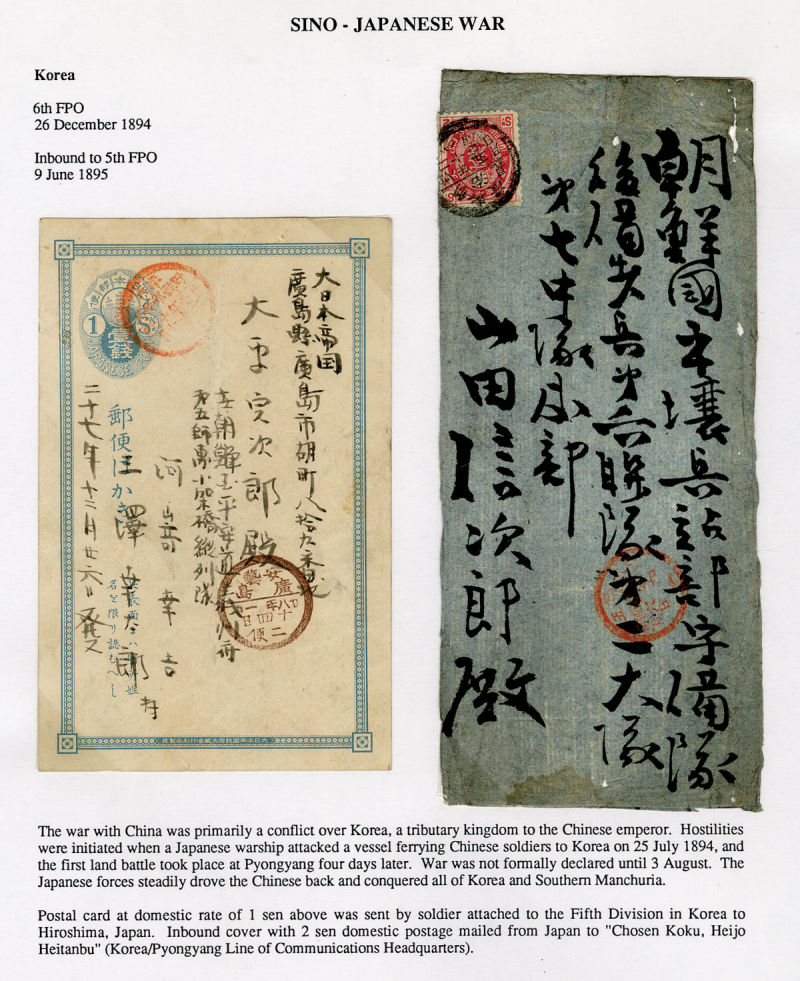 SINO - JAPANESE WAR
Korea
6th FPO
26 December 1894
Inbound to 5th FPO
9 June 1895
大日本帝国
廣島縣廣島市胡町八拾九番
大 次郎殿
在朝鮮国平安道 州府
第五師團 橋縦列隊
河 幸吉
郵便はかき
二十七年十二月廿六日 発ス
1
S
壹銭
JAPANESE
安藝
廣島
二便
朝鮮國平壌兵站部守備隊
後備歩兵第六聯隊第二大隊
第七中隊本部
山田信次郎殿
The war with China was primarily a conflict over Korea, a tributary kingdom to the Chinese emperor. Hostilities
were initiated when a Japanese warship attacked a vessel ferrying Chinese soldiers to Korea on 25 July 1894, and
the first land battle took place at Pyongyang four days later. War was not formally declared until 3 August. The
Japanese forces steadily drove the Chinese back and conquered all of Korea and Southern Manchuria.
Postal card at domestic rate of 1 sen above was sent by soldier attached to the Fifth Division in Korea to
Hiroshima, Japan. Inbound cover with 2 sen domestic postage mailed from Japan to "Chosen Koku, Heijo
Heitanbu" (Korea/Pyongyang Line of Communications Headquarters).